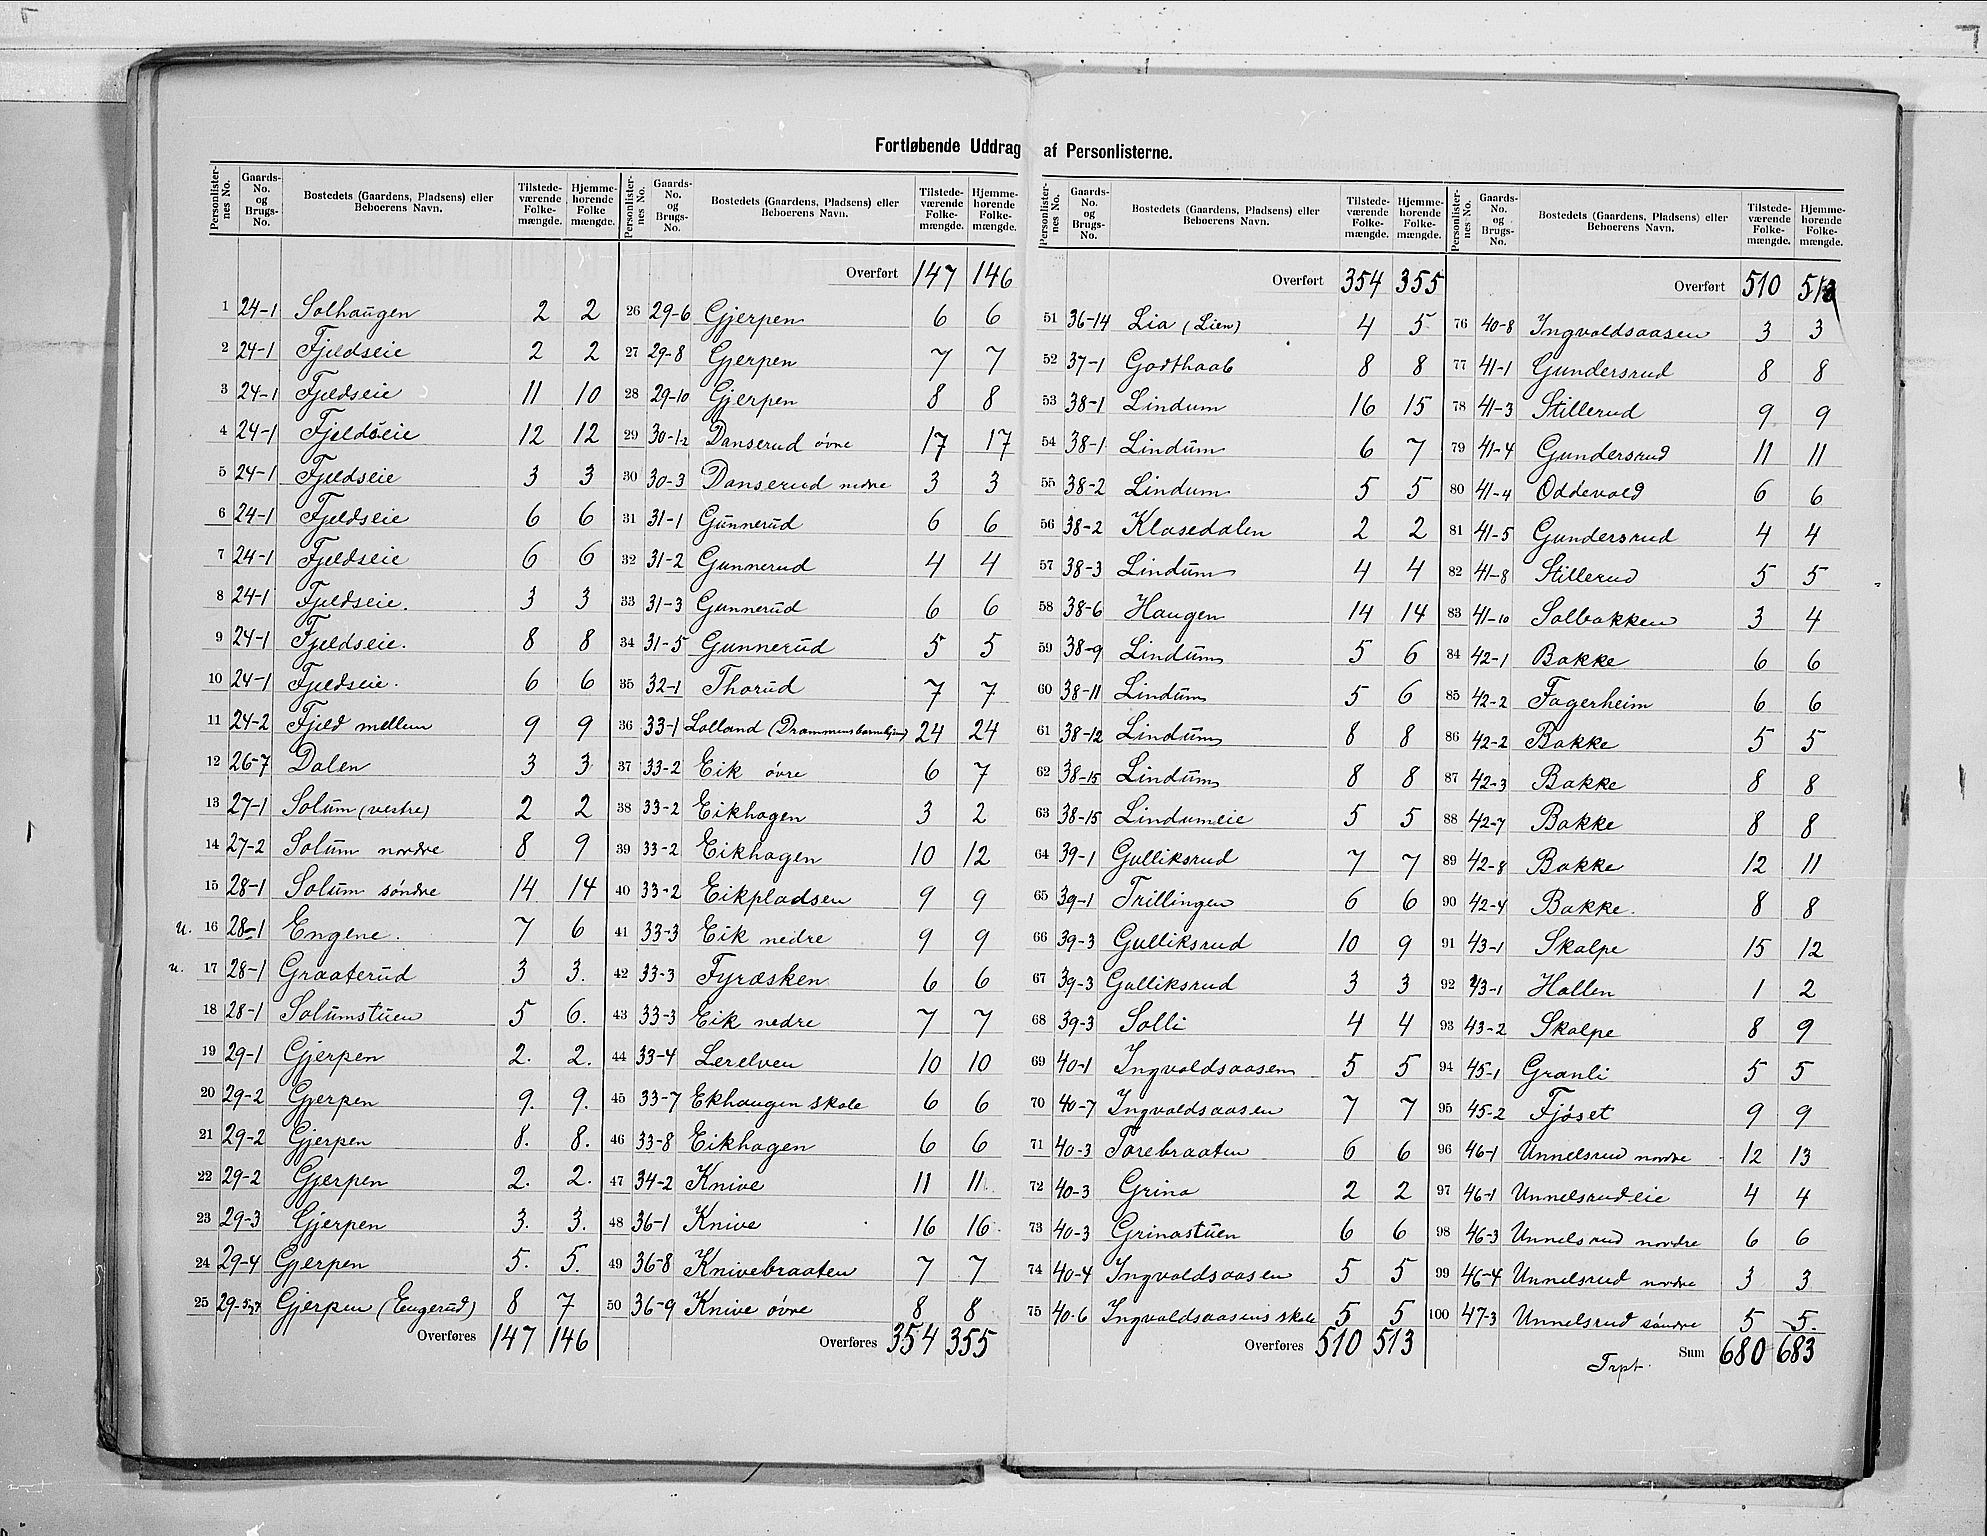 Fortløbende Uddrag af Personlisterne.
Personlisternes No. Gaards-No. og Brugs-No. Bostedets (Gaardens, Pladsens) eller Beboerens Navn. Tilstedeværende Folkemængde. Hjemmehørende Folkemængde.
1 24-1 Solhaugen 2 2
2 24-1 Fjeldseie 2 2
3 24-1 Fjeldseie 11 10
4 24-1 Fjeldseie 12 12
5 24-1 Fjeldseie 3 3
6 24-1 Fjeldseie 6 6
7 24-1 Fjeldseie 6 6
8 24-1 Fjeldseie. 3 3
9 24-1 Fjeldseie. 8 8
10 24-1 Fjeldseie. 6 6
11 24-2 Fjeld mellem 9 9
12 26-7 Dalen 3 3
13 27-1 Solum (vestre) 2 2
14 27-2 Solum nordre 8 9
15 28-1 Solum søndre 14 14
u. 16 28-1 Engene. 7 6
u. 17 28-1 Graaterud 3 3.
18 28-1 Solumstuen 5 6.
19 29-1 Gjerpen 2. 2.
20 29-2 Gjerpen 9. 9.
21 29-2 Gjerpen 8. 8.
22 29-2 Gjerpen 2. 2.
23 29-3 Gjerpen 3. 3.
24 29-4 Gjerpen 5. 5.
25 Gjerpen (Engerud) 8 7
Overføres 147 146
Personlisternes No. Gaards-No. og Brugs-No. Bostedets (Gaardens, Pladsens) eller Beboerens Navn. Tilstedeværende Folkemængde. Hjemmehørende Folkemængde.
Overført 147 146
26 29-6 Gjerpen 6 6
27 29-8 Gjerpen 7 7
28 29-10 Gjerpen 8 8
29 30-1,2 Danserud øvre 17 17
30 30-3 Danserud nedre 3 3
31 31-1 Gunnerud 6 6
32 31-2 Gunnerud 4 4
33 31-3 Gunnerud 6 6
34 31-5 Gunnerud 5 5
35 32-1 Thorud 7 7
36 33-1 Lolland (Drammensbarnehjem) 24 24
37 33-2 Eik øvre 6 7
38 33-2 Eikhagen 3 2
39 33-2 Eikhagen 10 12
40 33-2 Eikpladsen 9 9
41 33-3 Eik nedre 9 9
42 33-3 Fyræsken 6 6
43 33-3 Eik nedre 7 7
44 33-4 Lerelven 10 10
45 33-7 Ekhaugen skole 6 6
46 33-8 Eikhagen 6 6
47 34-2 Knive 11 11
48 36-1 Knive 16 16
49 36-8 Knivebraaten 7 7
50 36-9 Knive øvre 8 8
Overføres 354 355
Personlisternes No. Gaards-No. og Brugs-No. Bostedets (Gaardens, Pladsens) eller Beboerens Navn. Tilstedeværende Folkemængde. Hjemmehørende Folkemængde.
Overført 354 355
51 36-14 Lia (Lien) 4 5
52 37-1 Godthaab 8 8
53 38-1 Lindum 16 15
54 38-1 Lindum 6 7
55 38-2 Lindum 5 5
56 38-2 Klasedalen 2 2
57 38-3 Lindum 4 4
58 38-6 Haugen 14 14
59 38-9 Lindum 5 6
60 38-11 Lindum 5 6
61 38-12 Lindum 8 8
62 38-15 Lindum 8 8
63 38-15 Lindumeie 5 5
64 39-1 Gulliksrud 7 7
65 39-1 Trillingen 6 6
66 39-3 Gulliksrud 10 9
67 39-3 Gulliksrud 3 3
68 39-3 Solli 4 4
69 40-1 Ingvaldsaasen 5 5
70 40-7 Ingvaldsaasen 7 7
71 40-3 Torebraaten 6 6
72 40-3 Grina 2 2
73 40-3 Grinastuen 6 6
74 40-4 Ingvaldsaasen 5 5
75 40-6 Ingvaldsaasens skole 5 5
Overføres 510 513
Personlisternes No. Gaards-No. og Brugs-No. Bostedets (Gaardens, Pladsens) eller Beboerens Navn. Tilstedeværende Folkemængde. Hjemmehørende Folkemængde.
Overført 510 513
76 40-8 Ingvaldsaasen 3 3
77 41-1 Gundersrud 8 8
78 41-3 Stillerud 9 9
79 41-4 Gundersrud 11 11
80 41-4 Oddevold 6 6
81 41-5 Gundersrud 4 4
82 41-8 Stillerud 5 5
83 41-10 Solbakken 3 4
84 42-1 Bakke 6 6
85 42-2 Fagerheim 6 6
86 42-2 Bakke 5 5
87 42-3 Bakke 8 8
88 42-7 Bakke 8 8
89 42-8 Bakke 12 11
90 42-4 Bakke. 8 8
91 43-1 Skalpe 15 12
92 43-1 Hallen 1 2
93 43-2 Skalpe 8 9
94 45-1 Granli 5 5
95 45-2 Fjøset 9 9
96 46-1 Unnelsrud nordre 12 13
97 46-1 Unnelsrudeie 4 4
98 46-3 Unnelsrud nordre 6 6
99 46-4 Unnelsrud nordre 3 3
100 47-3 Unnelsrud søndre 5 5.
Sum 680 683
Trpt.